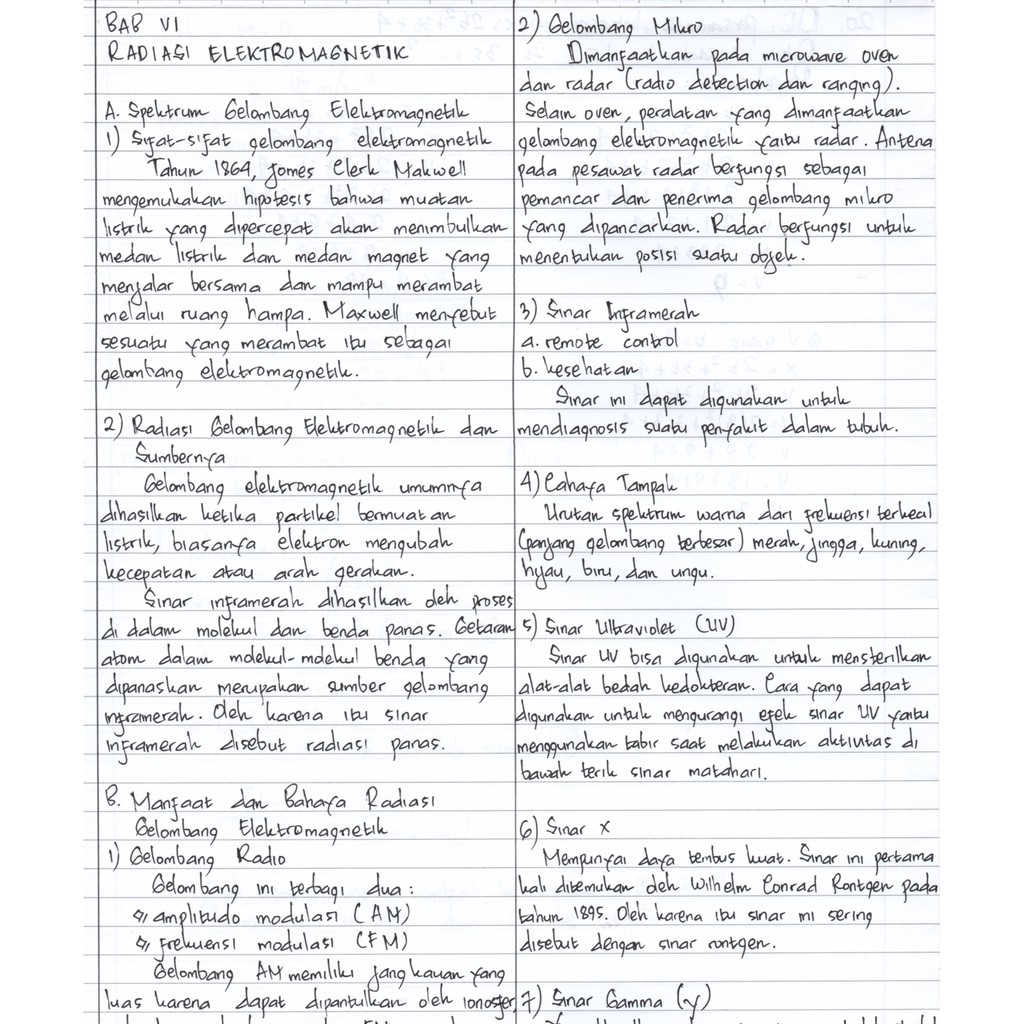 BAB VI
RADIASI ELEKTROMAGNETIK
A. Spektrum Gelombang Elektromagnetik
1) Sifat-sifat gelombang elektromagnetik
Tahun 1864, James Clerk Makwell
mengemukakan hipotesis bahwa muatan
listrik yang dipercepat akan menimbulkan
medan listrik dan medan magnet yang
menjalar bersama dan mampu merambat
melalui ruang hampa. Maxwell menyebut
sesuatu yang merambat itu sebagai
gelombang elektromagnetik.
2) Radiasi Gelombang Elektromagnetik dan
Sumbernya
Gelombang elektromagnetik umumnya
dihasilkan ketika partikel bermuatan
listrik, biasanya elektron mengubah
kecepatan atau arah gerakan.
Sinar inframerah dihasilkan oleh proses
di dalam molekul dan benda panas. Getaran
atom dalam molekul-molekul benda yang
dipanaskan merupakan sumber gelombang
inframerah. Oleh karena itu sinar
inframerah disebut radiasi panas.
B. Manfaat dan Bahaya Radiasi
Gelombang Elektromagnetik
1) Gelombang Radio
Gelombang ini terbagi dua :
amplitudo modulasi (AM)
frekuensi modulasi (FM)
Gelombang AM memiliki jangkauan yang
luas karena dapat dipantulkan oleh ionosfer,
2) Gelombang Mikro
Dimanfaatkan pada microwave oven
dan radar (radio detection dan ranging).
Selain oven, peralatan yang dimanfaatkan
gelombang elektromagnetik yaitu radar. Antena
pada pesawat radar berfungsi sebagai
pemancar dan penerima gelombang mikro
yang dipancarkan. Radar berfungsi untuk
menentukan posisi suatu objek.
3) Sinar Inframerah
a. remote control
b. kesehatan
Sinar ini dapat digunakan untuk
mendiagnosis suatu penyakit dalam tubuh.
4) Cahaya Tampak
Urutan spektrum warna dari frekuensi terkecal
(panjang gelombang terbesar) merah, jingga, kuning,
hijau, biru, dan ungu.
5) Sinar Ultraviolet (UV)
Sinar UV bisa digunakan untuk mensterilkan
alat-alat bedah kedokteran. Cara yang dapat
digunakan untuk mengurangi efek sinar UV yaitu
menggunakan tabir saat melakukan aktivitas di
bawah terik sinar matahari.
6) Sinar X
Mempunyai daya tembus kuat. Sinar ini pertama
kali ditemukan oleh Wilhelm Conrad Rontgen pada
tahun 1895. Oleh karena itu sinar ini sering
disebut dengan sinar rontgen.
7) Sinar Gamma (γ)